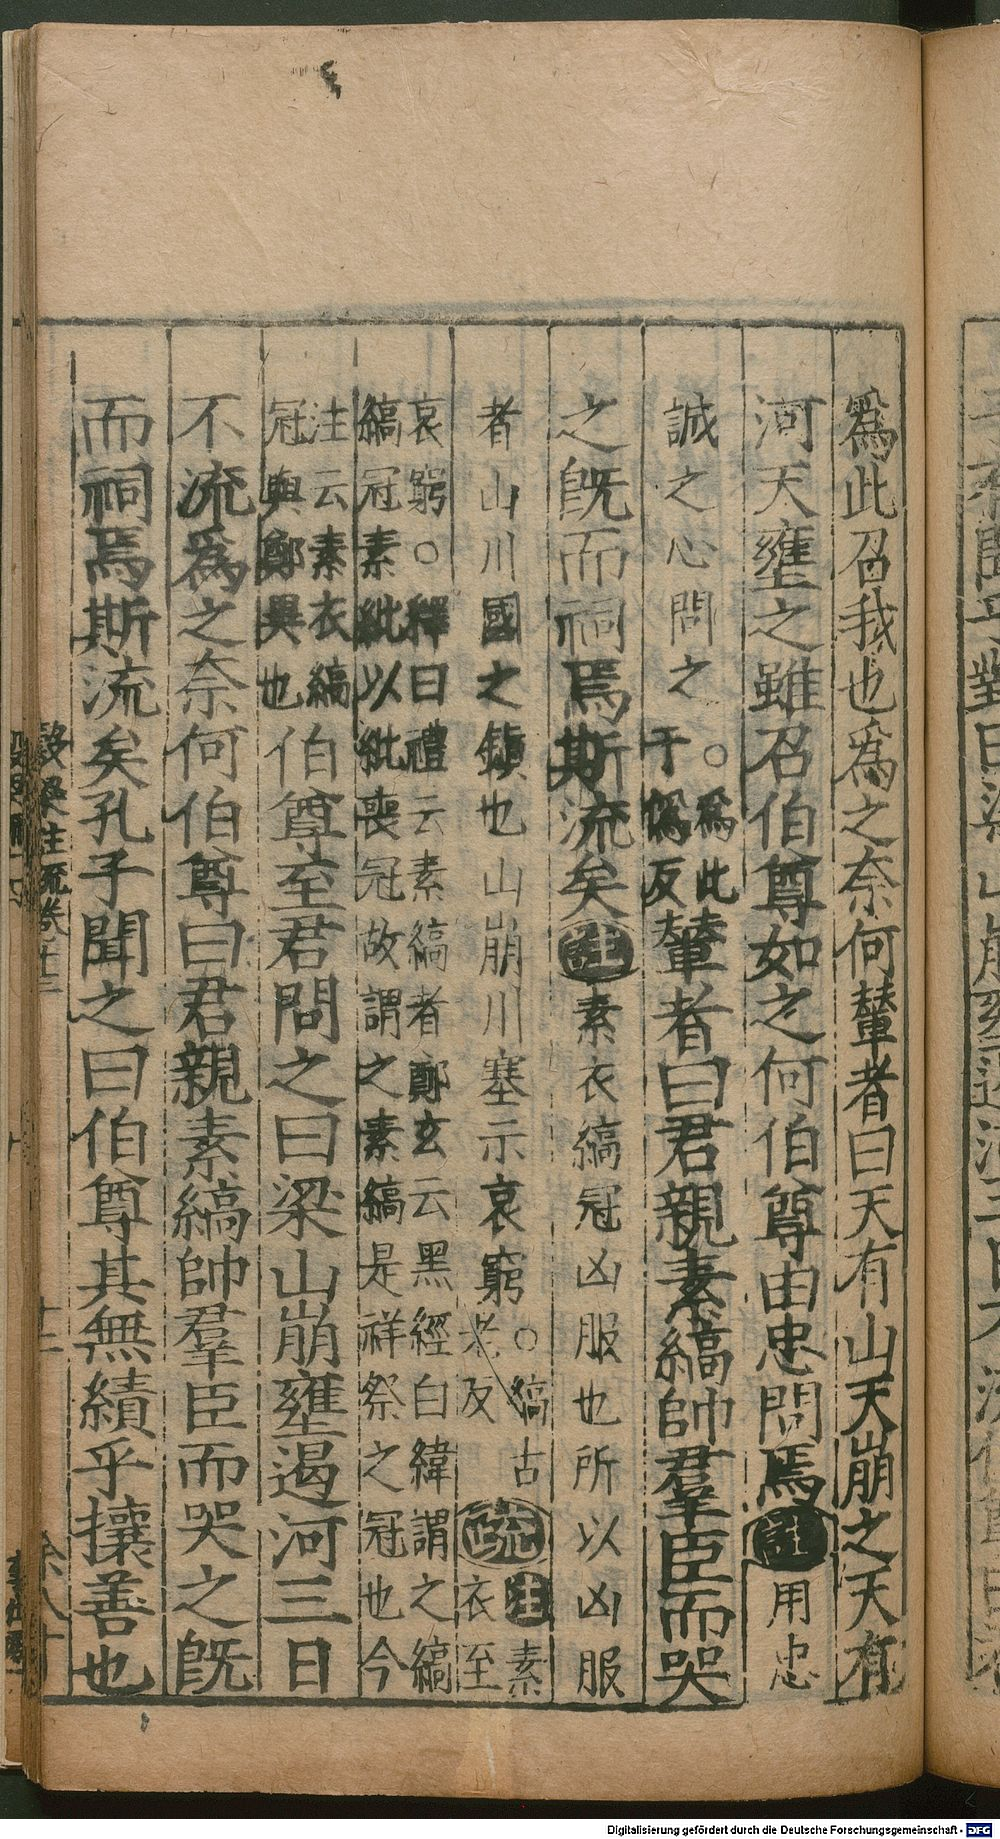 爲此召我也爲之奈何輦者曰天有山天崩之天有
河天壅之雖召伯尊如之何伯尊由忠問焉註用忠
誠之心問之○爲此于僞反輦者曰君親素縞帥羣臣而哭
之旣而祠焉斯流矣註素衣縞冠凶服也所以凶服
者山川國之鎮也山崩川塞示哀窮○縞古老反疏註素衣至
哀窮○釋曰禮云素縞者鄭玄云黑經白緯謂之縞
縞冠素紕以紕喪冠故謂之素縞是祥祭之冠也今
注云素衣縞
冠與鄭異也伯尊至君問之曰梁山崩壅遏河三日
不流爲之奈何伯尊曰君親素縞帥羣臣而哭之旣
而祠焉斯流矣孔子聞之曰伯尊其無績乎攘善也
梁注疏卷十三
十二
Digitalisierung gefördert durch die Deutsche Forschungsgemeinschaft - DFG